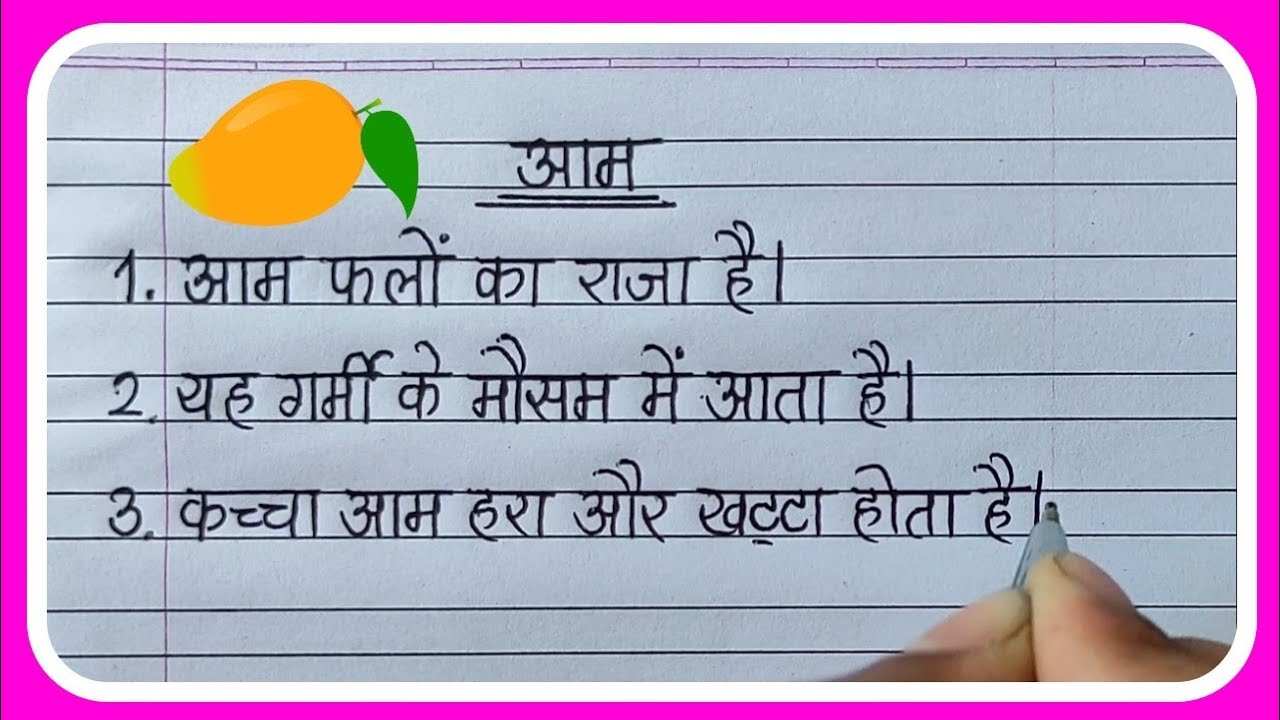 आम
1. आम फलों का राजा है।
2. यह गर्मी के मौसम में आता है।
3. कच्चा आम हरा और खट्टा होता है।